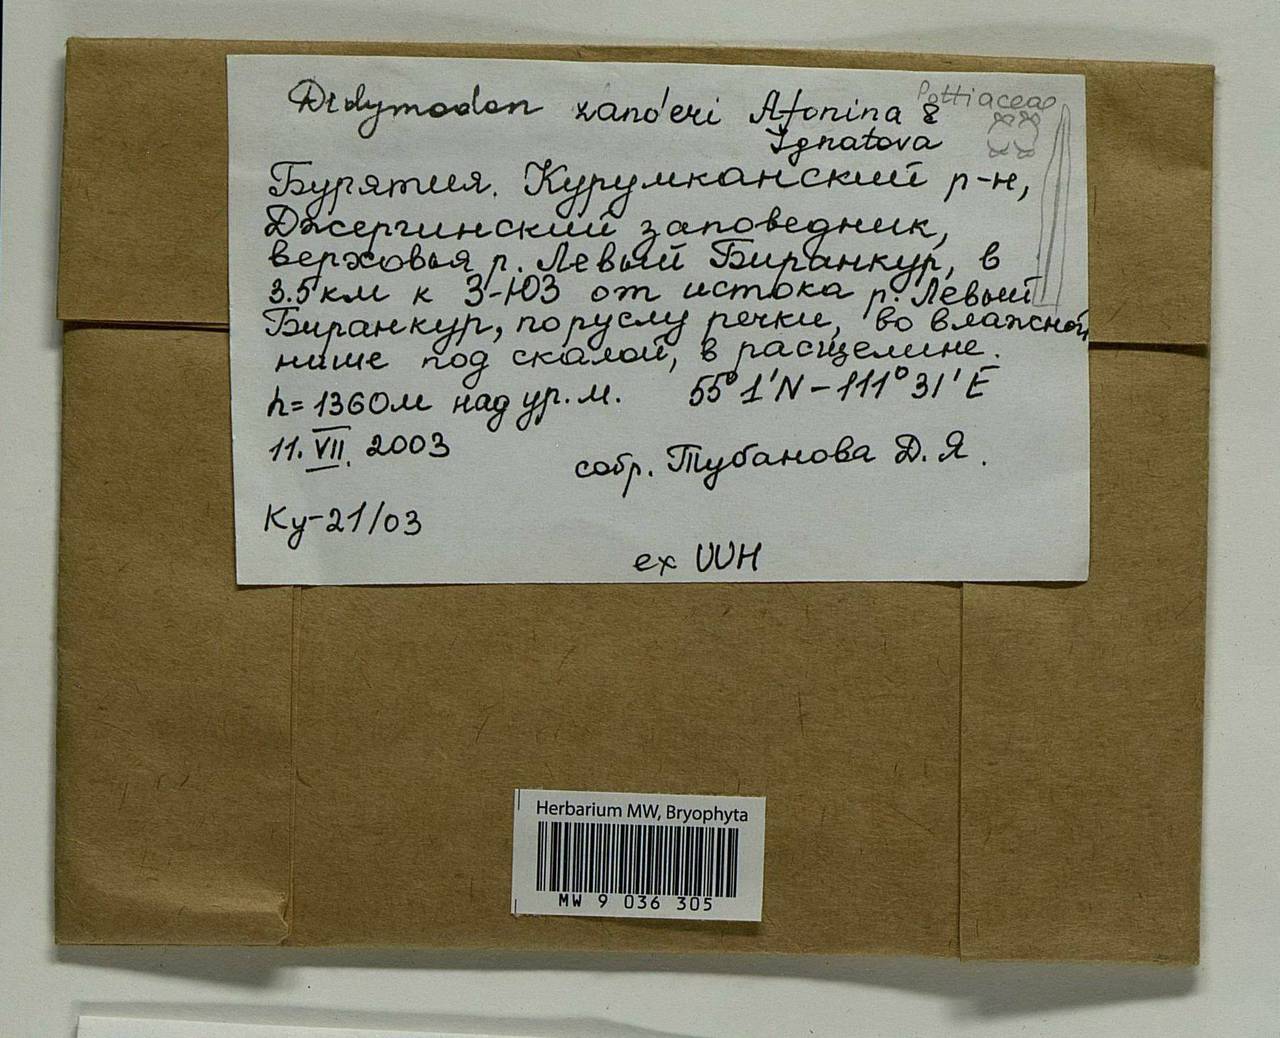 Pottiaceae
Didymodon zanderi Afonina &
Ignatova
Бурятия. Курумканский р-н,
Джергинский заповедник,
верховья р. Левый Биранкур, в
3.5 км к З-ЮЗ от истока р. Левый
Биранкур, по руслу речки, во влажной
нише под скалой, в расщелине.
h=1360м над ур. м. 55°1'N-111°31'E
11. VII. 2003
собр. Тубанова Д. Я.
Ку-21/03
ex UUH
Herbarium MW, Bryophyta
MW 9 036 305